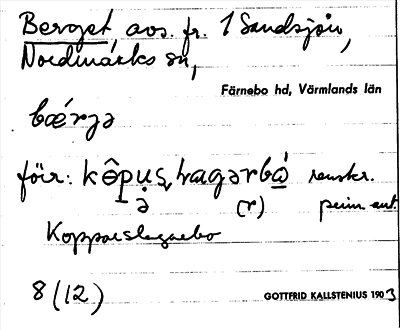 Berget, avs. fr. 1 Sandsjön,
Nordmarks sn,
Färnebo hd, Värmlands län
bǽrjə
föir:
renskr.
(r)
Kopparslagarebo
8 (12)
GOTTFRID KALLSTENIUS 1903